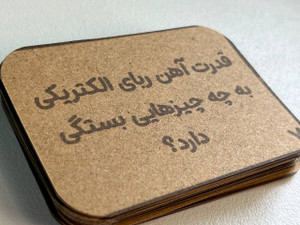 قدرت آهن ربای الکتریکی
به چه چیزهایی بستگی
دارد؟